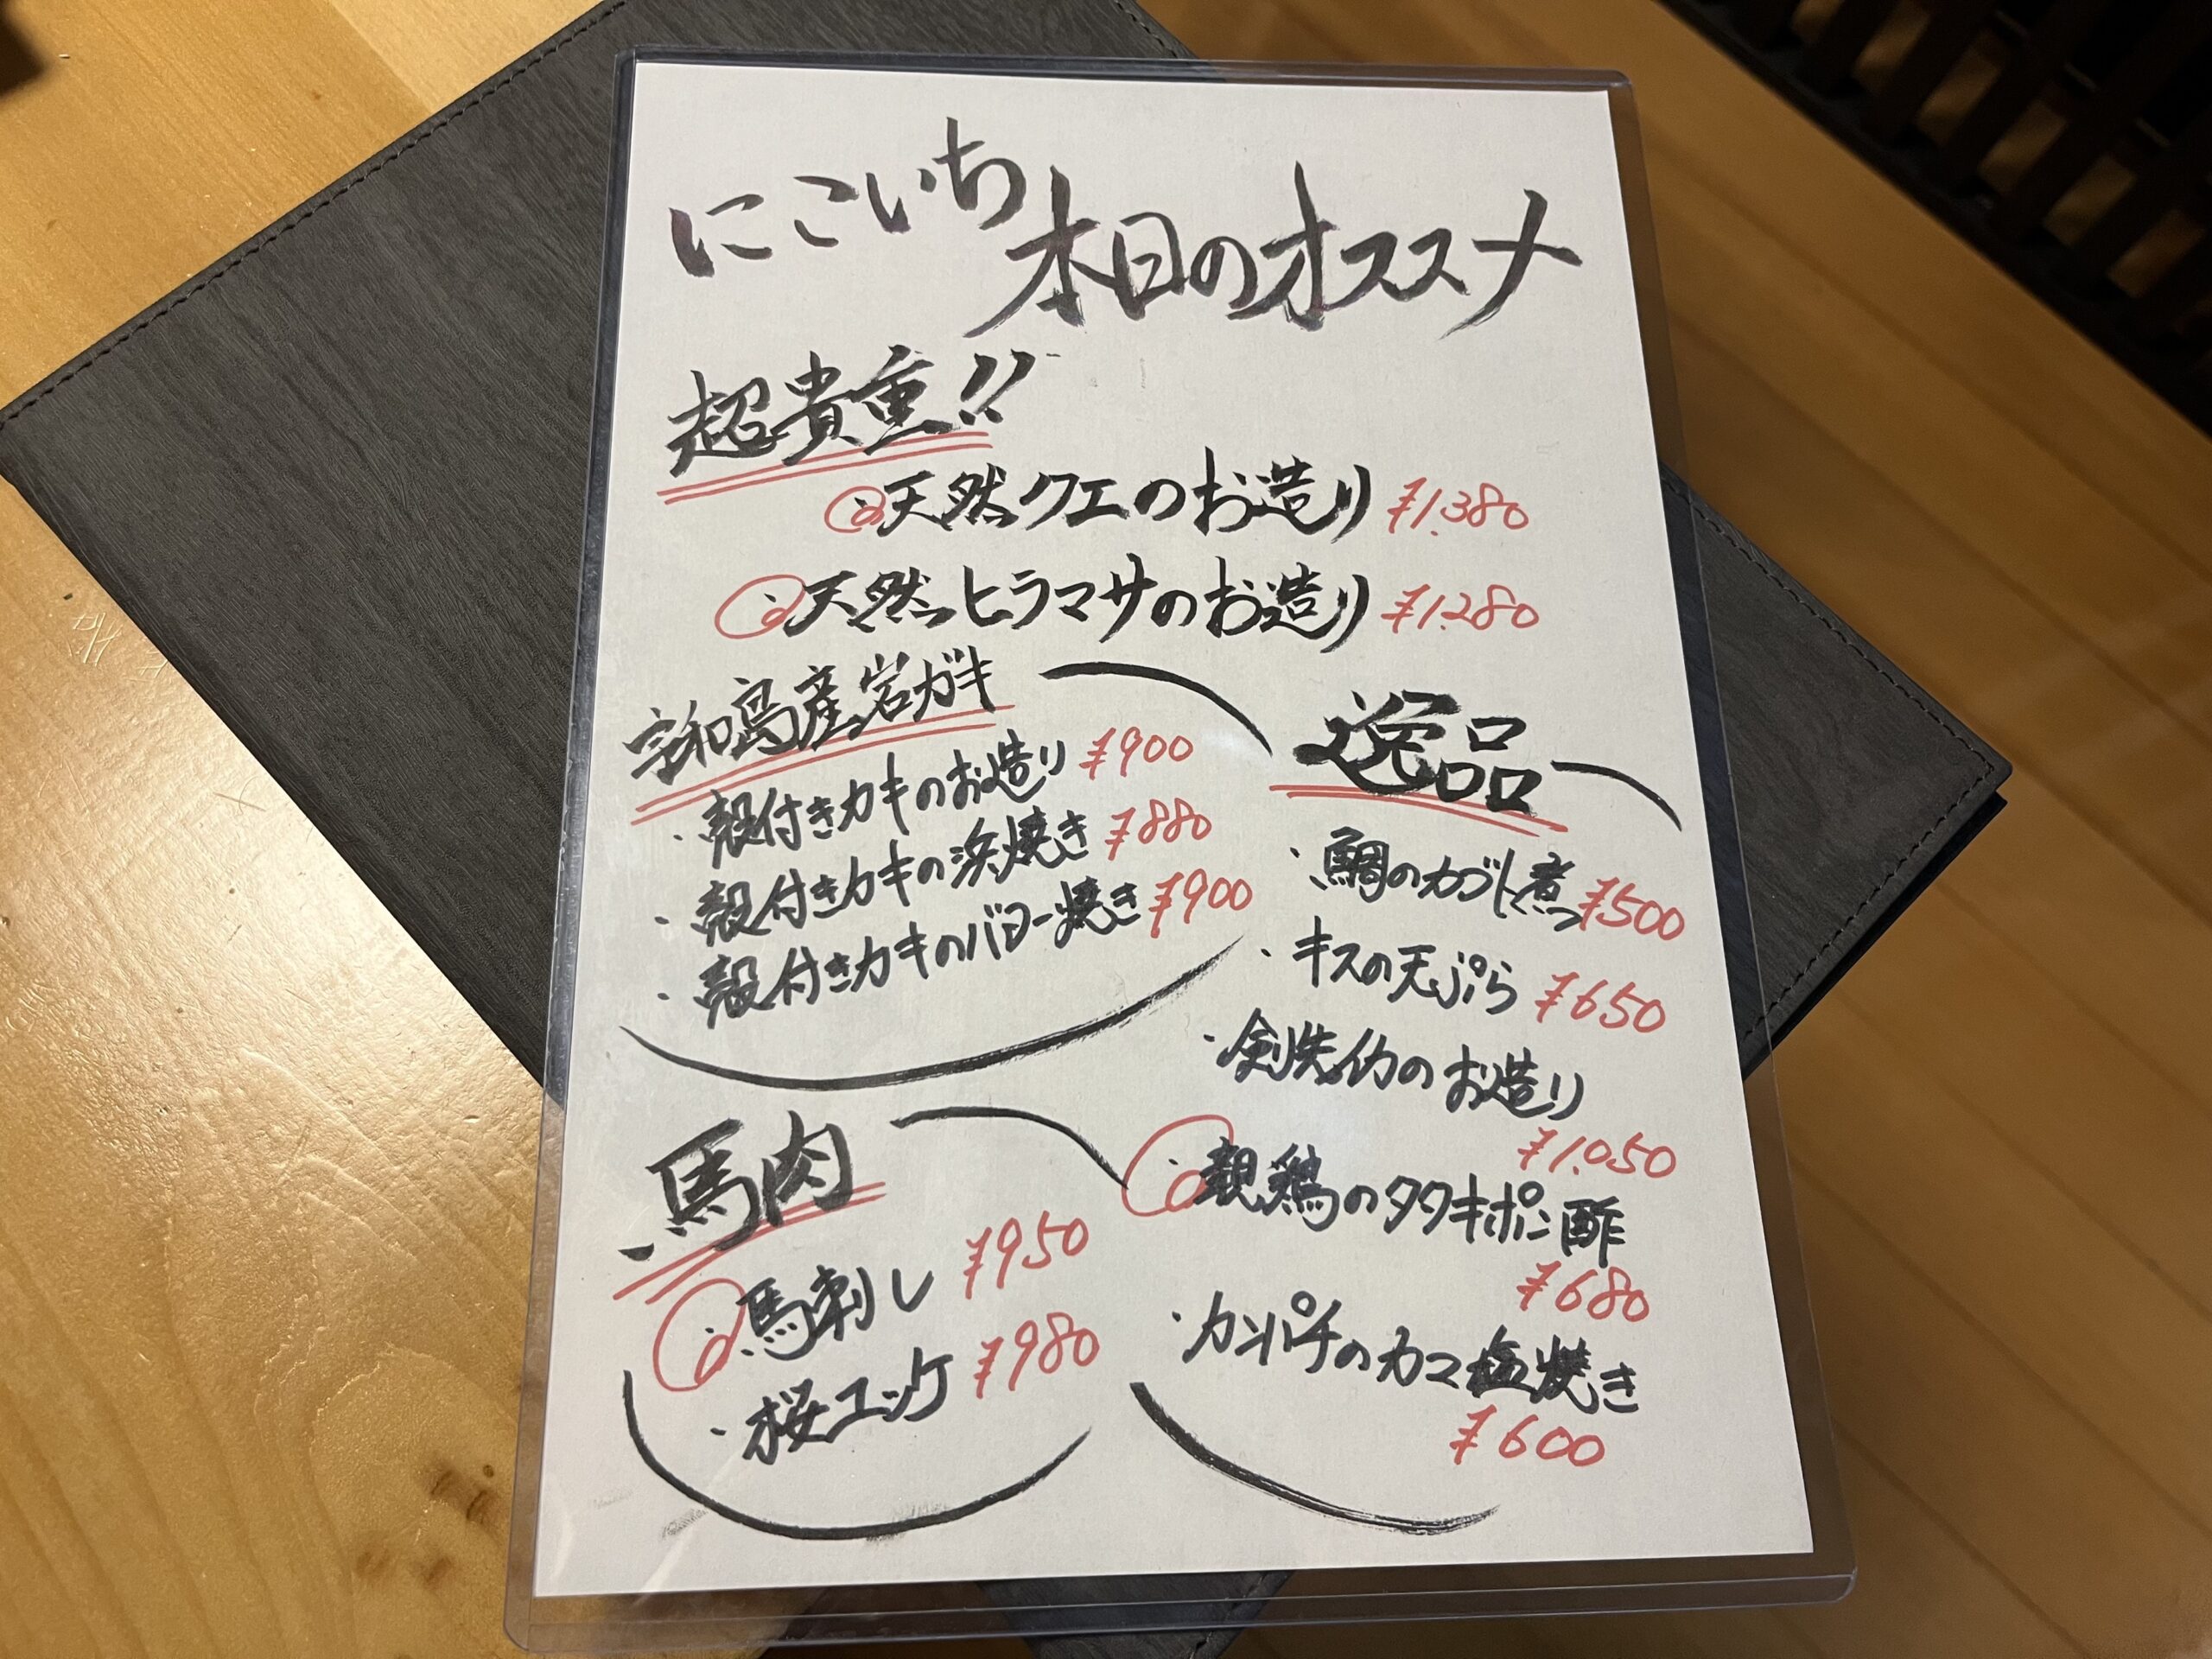 にこいち 本日のオススメ
超貴重!!
・天然クエのお造り ¥1.380
・天然ヒラマサのお造り ¥1.280
宇和島産岩ガキ
・殻付きカキのお造り ¥900
・殻付きカキの浜焼き ¥880
・殻付きカキのバター焼き ¥900
逸品
・鯛のカブト煮 ¥500
・キスの天ぷら ¥650
・剣先イカのお造り
¥1.050
・親鶏のタタキポン酢
¥680
・カンパチのカマ塩焼き
¥600
馬肉
・馬刺し ¥950
・桜ユッケ ¥980